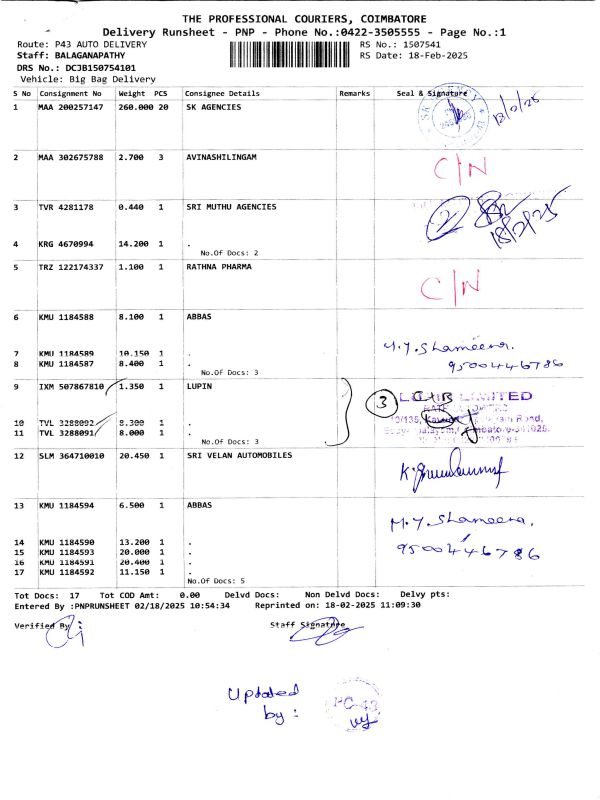 THE PROFESSIONAL COURIERS, COIMBATORE
Delivery Runsheet - PNP - Phone No.:0422-3505555 - Page No.:1
Route: P43 AUTO DELIVERY RS No.: 1507541
Staff: BALAGANAPATHY RS Date: 18-Feb-2025
DRS No.: DCJB150754101
Vehicle: Big Bag Delivery
S No Consignment No Weight PCS Consignee Details Remarks Seal & Signature
1 MAA 200257147 260.000 20 SK AGENCIES
18/2/25
2 MAA 302675788 2.700 3 AVINASHILINGAM
C/N
3 TVR 4281178 0.440 1 SRI MUTHU AGENCIES
2
18/2/25
4 KRG 4670994 14.200 1 .
No.Of Docs: 2
5 TRZ 122174337 1.100 1 RATHNA PHARMA
C/N
6 KMU 1184588 8.100 1 ABBAS
M.Y.Shameera.
7 KMU 1184589 10.150 1 .
8 KMU 1184587 8.400 1 .
9500446786
No.Of Docs: 3
9 IXM 507867810 1.350 1 LUPIN
3
LIMITED
10 TVL 3288092 8.300 1 .
11 TVL 3288091 8.000 1 .
No.Of Docs: 3
12 SLM 364710010 20.450 1 SRI VELAN AUTOMOBILES
13 KMU 1184594 6.500 1 ABBAS
M.Y.Shameera.
14 KMU 1184590 13.200 1 .
15 KMU 1184593 20.000 1 .
9500446786
16 KMU 1184591 20.400 1 .
17 KMU 1184592 11.150 1 .
No.Of Docs: 5
Tot Docs: 17 Tot COD Amt: 0.00 Delvd Docs: Non Delvd Docs: Delvy pts:
Entered By :PNPRUNSHEET 02/18/2025 10:54:34 Reprinted on: 18-02-2025 11:09:30
Verified By Staff Signatrue
Updated
by :
PC-43